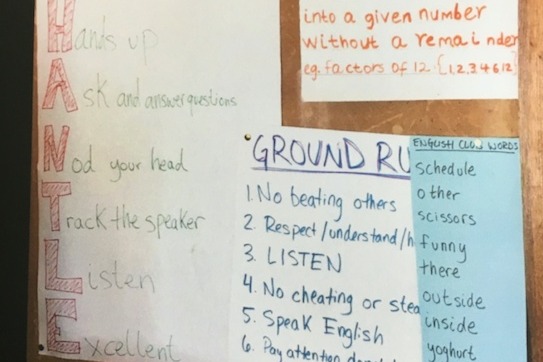 Hands up
Ask and answer questions
Nod your head
Track the speaker
Listen
Excellent
into a given number
without a remainder
eg. factors of 12 {1,2,3,4,6,12}
GROUND RU
1. No beating others
2. Respect/understand/h
3. LISTEN
4. No cheating or stea
5. Speak English
6. Pay attention
ENGLISH CLUB WORDS
schedule
other
scissors
funny
there
outside
inside
yoghurt